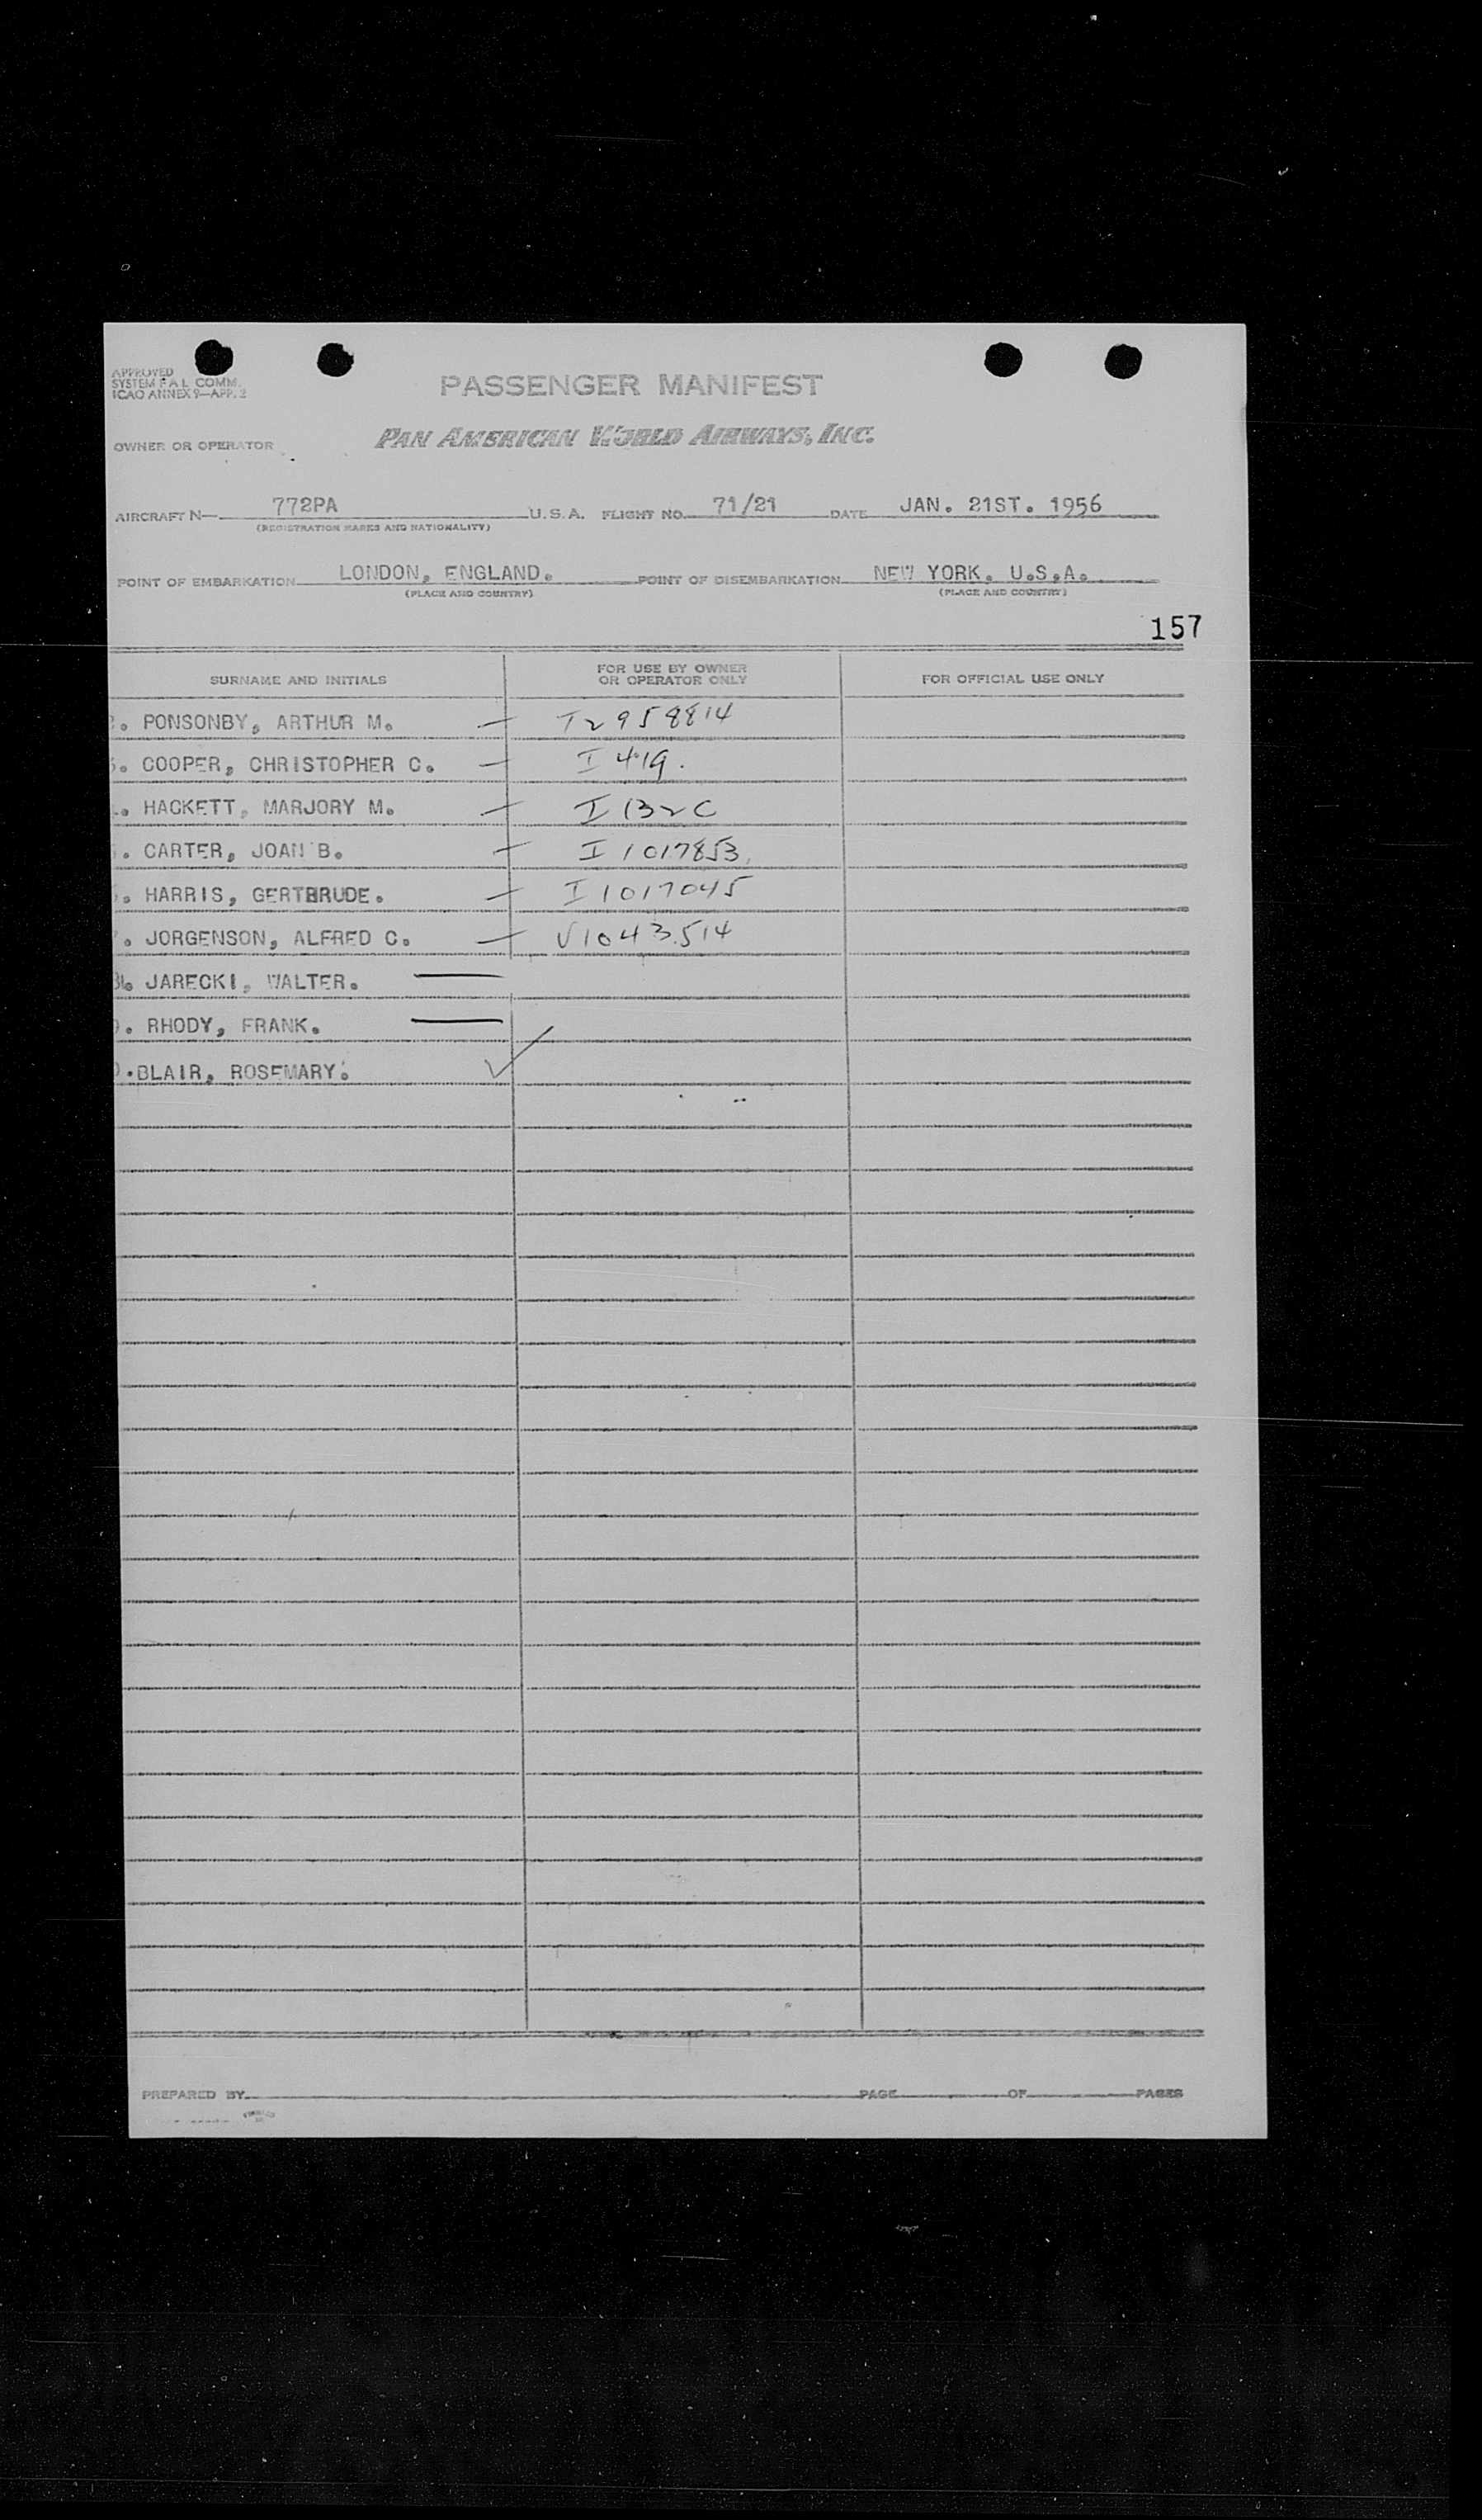 APPROVED
SYSTEM F A L COMM.
ICAO ANNEX 9—APP. 2
PASSENGER MANIFEST
OWNER OR OPERATOR PAN AMERICAN WORLD AIRWAYS, INC.
AIRCRAFT N— 772PA U.S.A. FLIGHT NO. 71/21 DATE JAN. 21ST. 1956
(REGISTRATION MARKS AND NATIONALITY)
POINT OF EMBARKATION LONDON, ENGLAND. POINT OF DISEMBARKATION NEW YORK. U.S.A.
(PLACE AND COUNTRY) (PLACE AND COUNTRY)
157
SURNAME AND INITIALS FOR USE BY OWNER OR OPERATOR ONLY FOR OFFICIAL USE ONLY
. PONSONBY, ARTHUR M. — I2958814
. COOPER, CHRISTOPHER C. — I 419.
. HACKETT, MARJORY M. — I 132C
. CARTER, JOAN B. — I 1017853
. HARRIS, GERTBRUDE. — I 1017045
. JORGENSON, ALFRED C. — V1043514
. JARECKI, WALTER. —
. RHODY, FRANK. —
. BLAIR, ROSEMARY. ✓
PREPARED BY PAGE OF PAGES